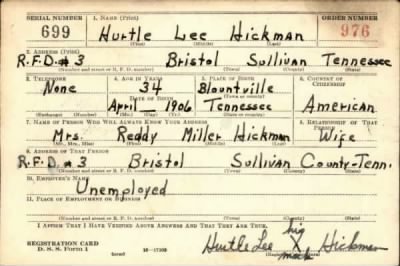 SERIAL NUMBER 1. NAME (Print) ORDER NUMBER
699 Hurtle Lee Hickman 976
(First) (Middle) (Last)
2. ADDRESS (Print)
R.F.D.#3 Bristol Sullivan Tennessee
(Number and street or R. F. D. number) (Town) (County) (State)
3. TELEPHONE 4. AGE IN YEARS 5. PLACE OF BIRTH 6. COUNTRY OF CITIZENSHIP
None 34 Blountville
DATE OF BIRTH (Town or county)
April 1906 Tennessee American
(Exchange) (Number) (Mo.) (Day) (Yr.) (State or country)
7. NAME OF PERSON WHO WILL ALWAYS KNOW YOUR ADDRESS 8. RELATIONSHIP OF THAT PERSON
Mrs. Reddy Miller Hickman Wife
(Mr., Mrs., Miss) (First) (Middle) (Last)
9. ADDRESS OF THAT PERSON
R.F.D.#3 Bristol Sullivan County-Tenn.
(Number and street or R. F. D. number) (Town) (County) (State)
10. EMPLOYER'S NAME
Unemployed
11. PLACE OF EMPLOYMENT OR BUSINESS
(Number and street or R. F. D. number) (Town) (County) (State)
I AFFIRM THAT I HAVE VERIFIED ABOVE ANSWERS AND THAT THEY ARE TRUE.
REGISTRATION CARD
D. S. S. Form 1 (over) 16-17105
Hurtle Lee his X mark Hickman